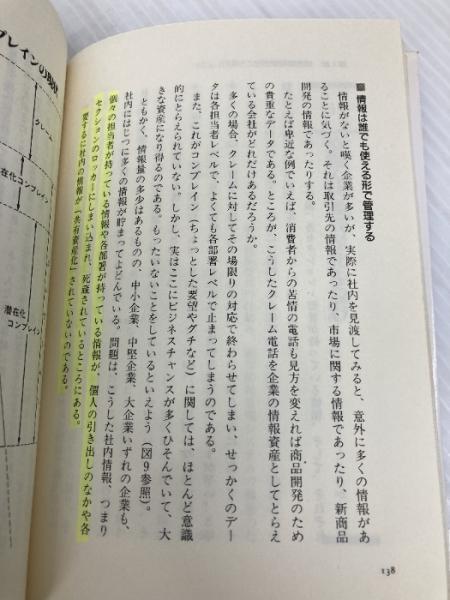 ■情報は誰でも使える形で管理する
情報がないと嘆く企業が多いが、実際に社内を見渡してみると、意外に多くの情報があ
ることに気づく。それは取引先の情報であったり、市場に関する情報であったり、新商品
開発の情報であったりする。
たとえば卑近な例でいえば、消費者からの苦情の電話も見方を変えれば商品開発のため
の貴重なデータである。ところが、こうしたクレーム電話を企業の情報資産としてとらえ
ている会社がどれだけあるだろうか。
多くの場合、クレームに対してその場限りの対応で終わらせてしまい、せっかくのデー
タは各担当者レベルで、よくても各部署レベルで止まってしまうのである。
また、これがコンプレイン(ちょっとした要望やグチなど)に関しては、ほとんど意識
的にとらえられていない。しかし、実はここにビジネスチャンスが多くひそんでいて、大
きな資産になり得るのである。もったいないことをしているといえよう(図9参照)。
ともかく、情報量の多少はあるものの、中小企業、中堅企業、大企業いずれの企業も、
社内にはじつに多くの情報が貯まってよどんでいる。問題は、こうした社内情報、つまり
個々の担当者が持っている情報や各部署が持っている情報が、個人の引き出しのなかや各
セクションのロッカーにしまい込まれ、死蔵されているところにある。
要するに社内の情報が「共有資産化」されていないのである。
138
プレインの
クレーム
在化コンプレイン
潜在化
コンプレイン